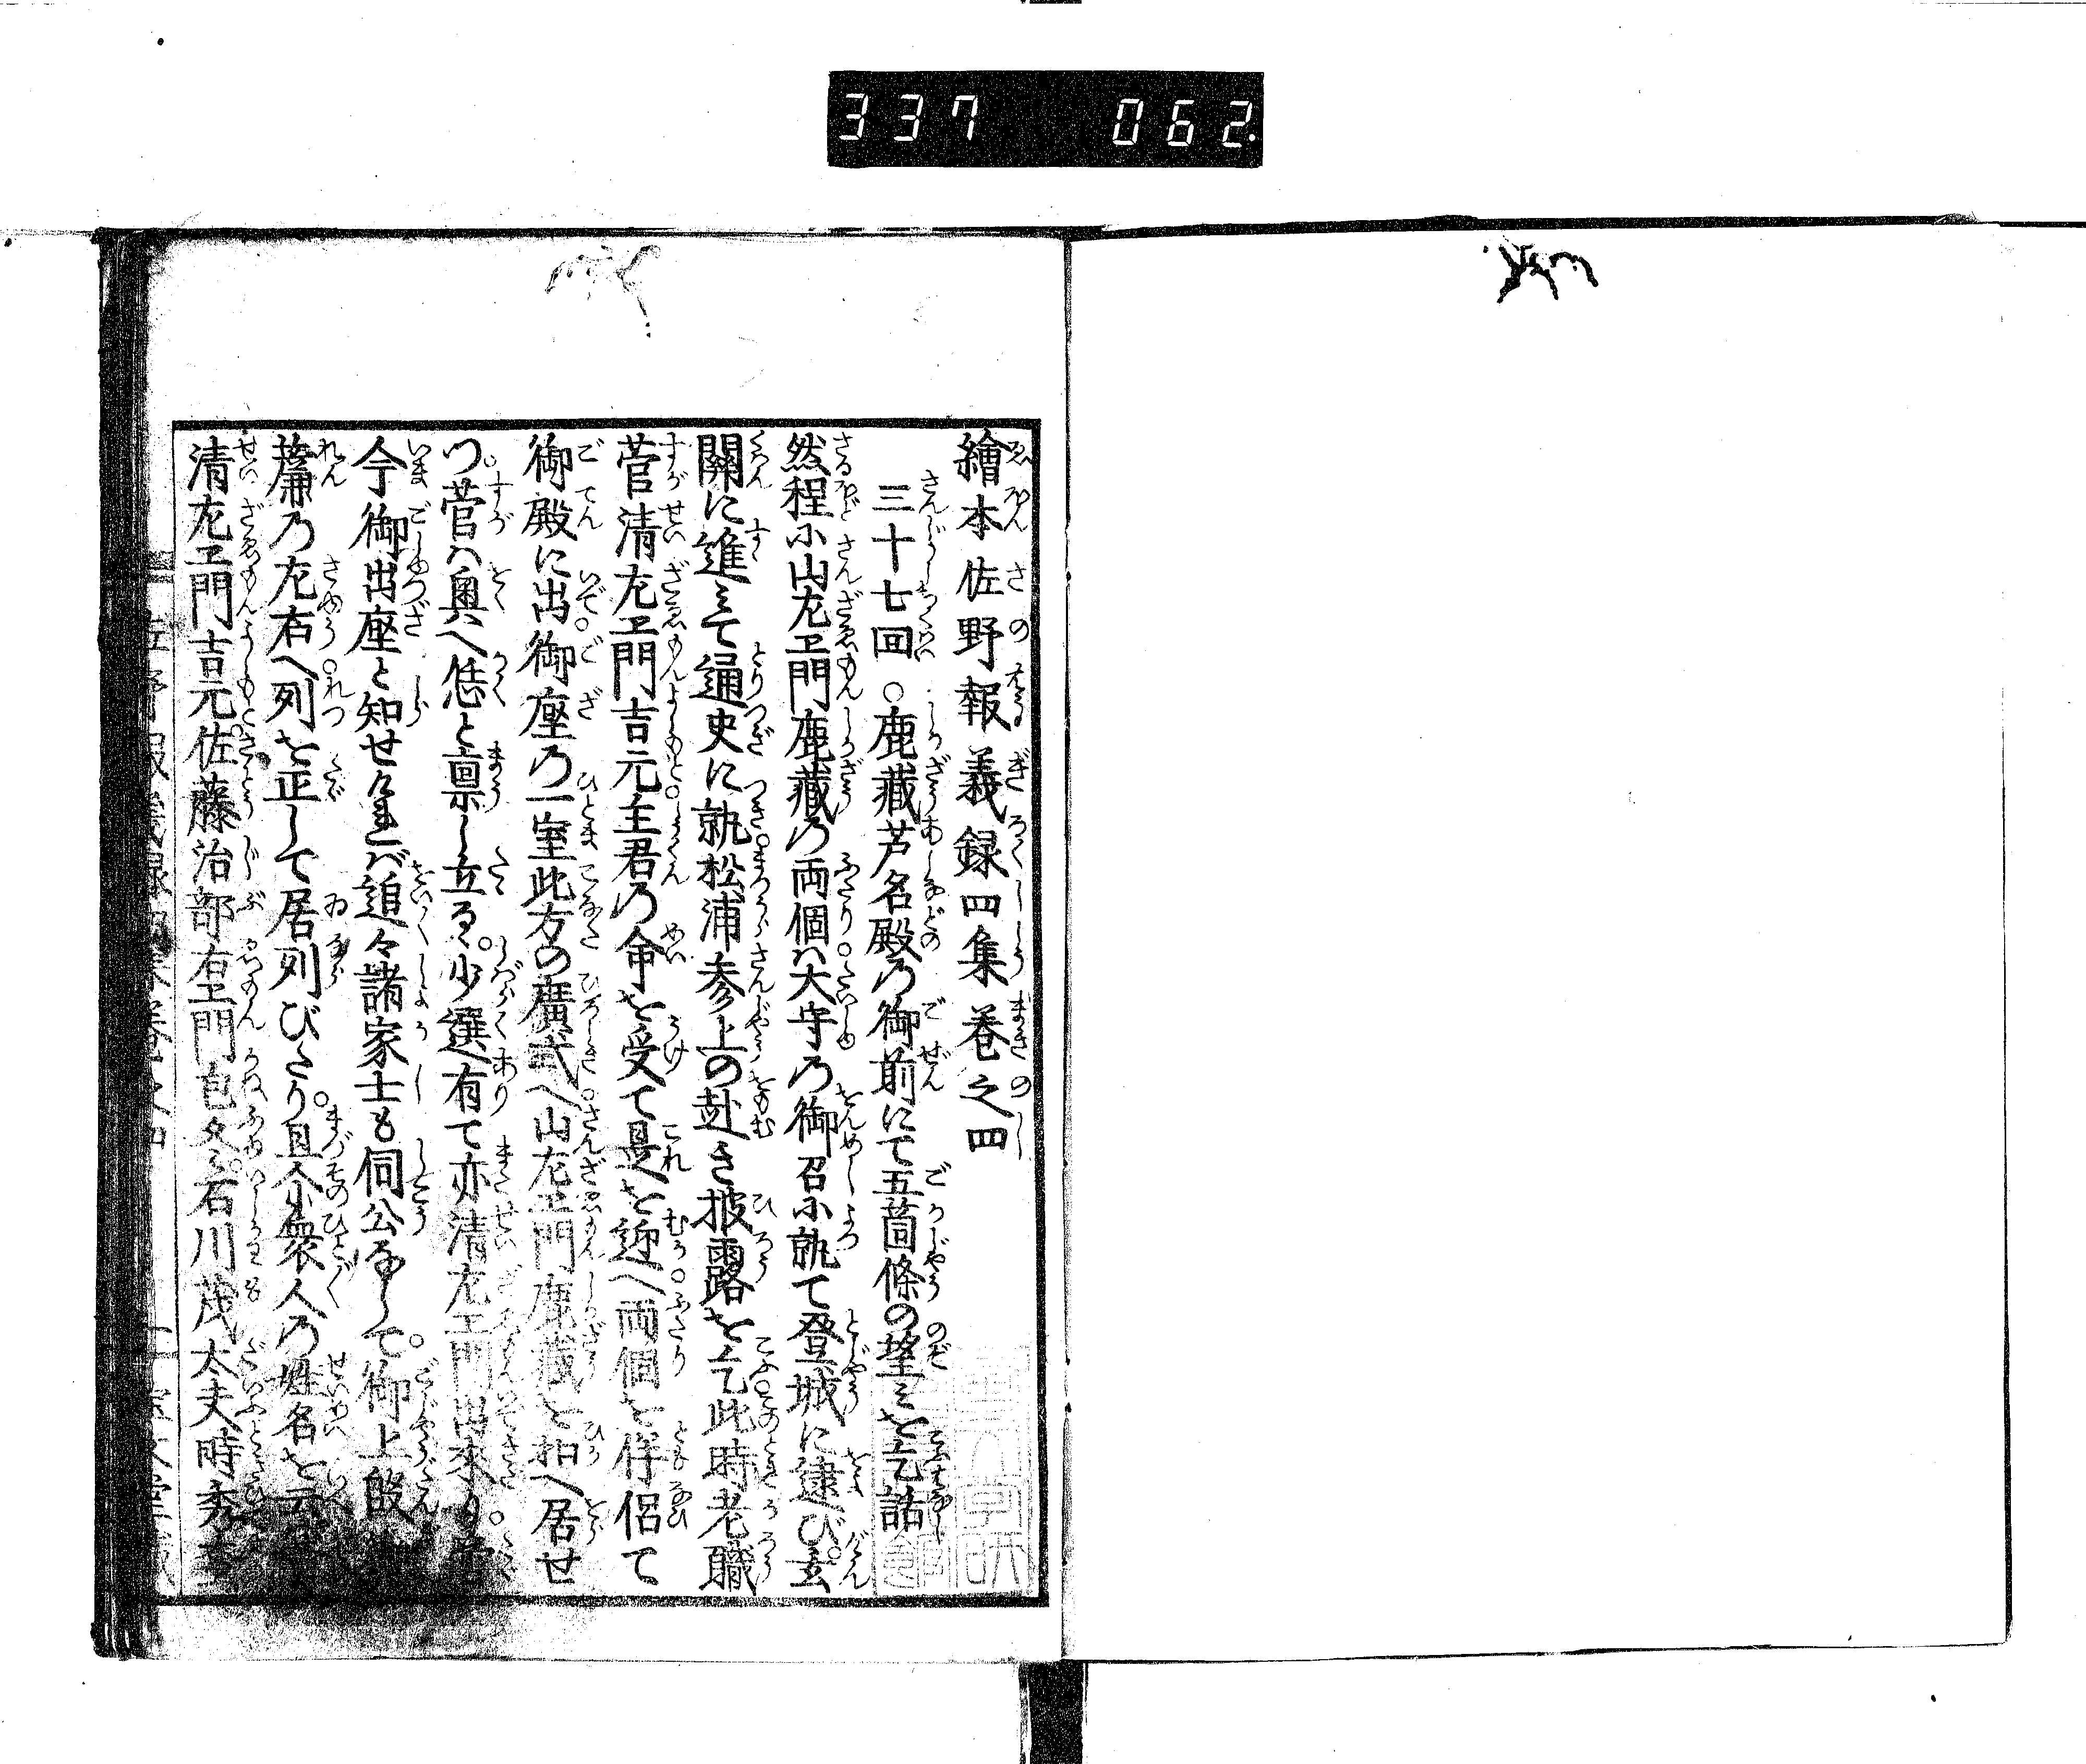 337 062
繪本佐野報義録四集巻之四
三十七回 ○鹿藏芦名殿乃御前にて五箇條の望ミを乞話
然程小山左エ門鹿藏乃両個ハ大守乃御召小執て登城に逮び。玄
關に進ミて通史に執松浦参上の赴き披露を乞此時老職
菅清左エ門吉元主君乃命を受て是を迎へ両個を伴侶て
御殿に出御座乃一室此方の廣式へ山左エ門鹿藏を扣へ居せ
つ。菅ハ奥へ恁と禀し立る。少選有て亦清左エ門出來り
今御出座と知せけれバ追々諸家士も伺公なして。御上段
簾乃左右へ列を正して居列びたり。且尒衆人乃姓名を云
清左エ門吉元。佐藤治部右エ門包久。石川茂太夫時秀